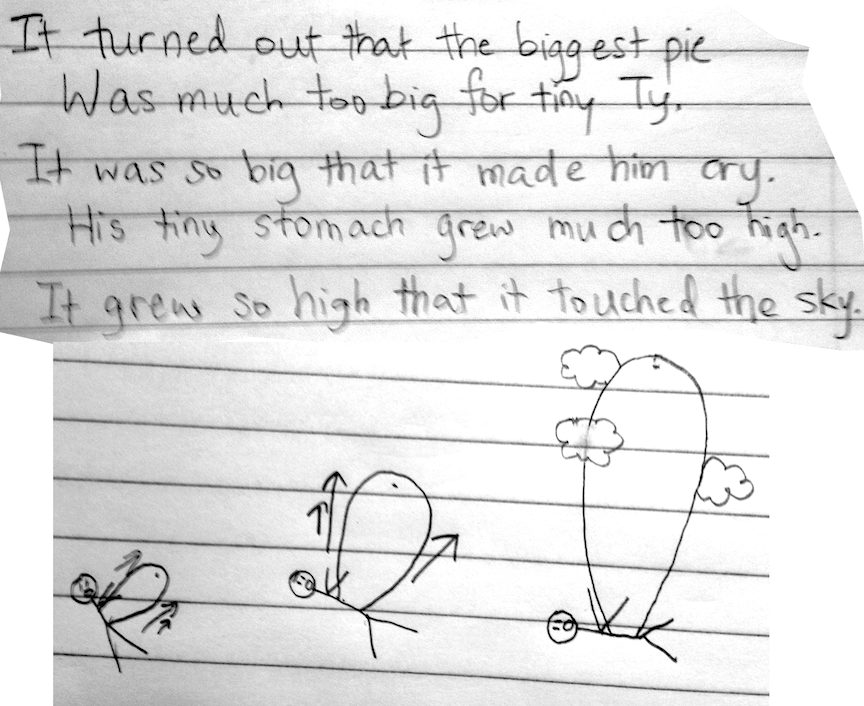 It turned out that the biggest pie
Was much too big for tiny Ty.
It was so big that it made him cry.
His tiny stomach grew much too high.
It grew so high that it touched the sky.